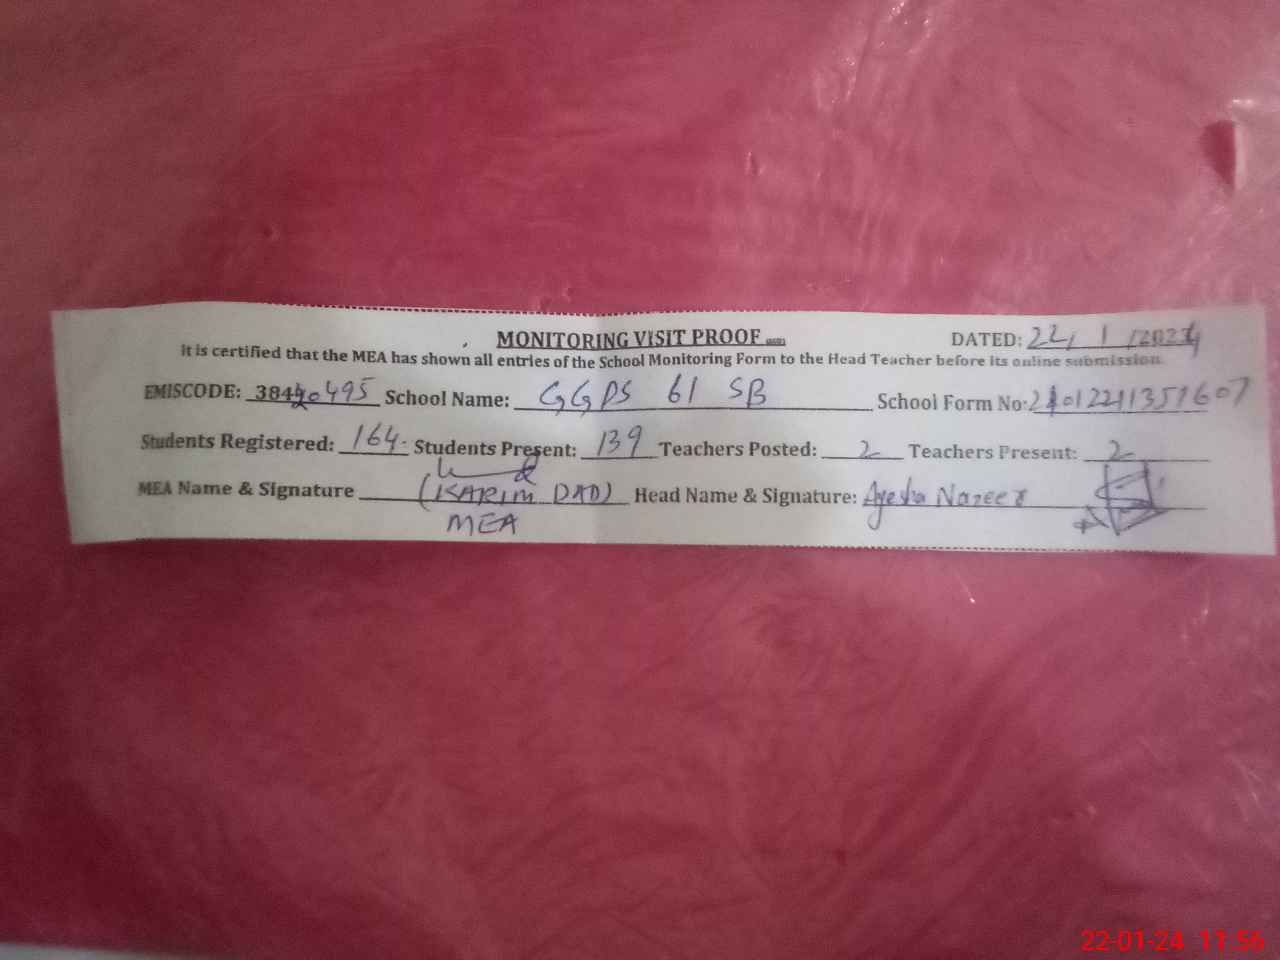 MONITORING VISIT PROOF
DATED: 22/1/2024
It is certified that the MEA has shown all entries of the School Monitoring Form to the Head Teacher before its online submission.
EMISCODE: 38420495 School Name: GGPS 61 SB School Form No: 2401221351607
Students Registered: 164 Students Present: 139 Teachers Posted: 2 Teachers Present: 2
MEA Name & Signature (KARIM DAD) Head Name & Signature: Ayesha Nazeer
MEA
22-01-24 11:56